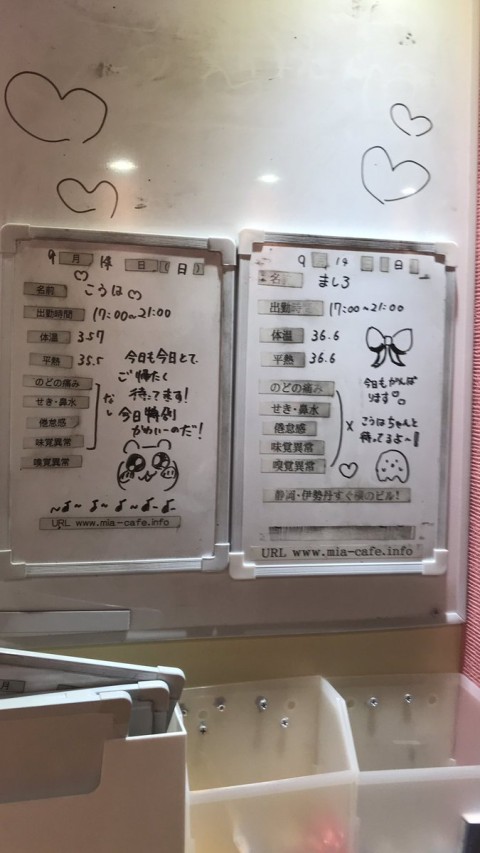 9月 14日(日)
名前 こうは
出勤時間 17:00~21:00
体温 35.7
平熱 35.5
のどの痛み
せき・鼻水
倦怠感
味覚異常
嗅覚異常
なし
今日も今日とて、
ご帰たく
待ってます!
今日特別
かわいーのだ!
URL www.mia-cafe.info
9 14 日
名 ましろ
出勤時間 17:00~21:00
体温 36.6
平熱 36.6
のどの痛み
せき・鼻水
倦怠感
味覚異常
嗅覚異常
×
今日もがんば
ります
こうはちゃんと
待ってるよ~!
静岡・伊勢丹すぐ横のビル!
URL www.mia-cafe.info
月